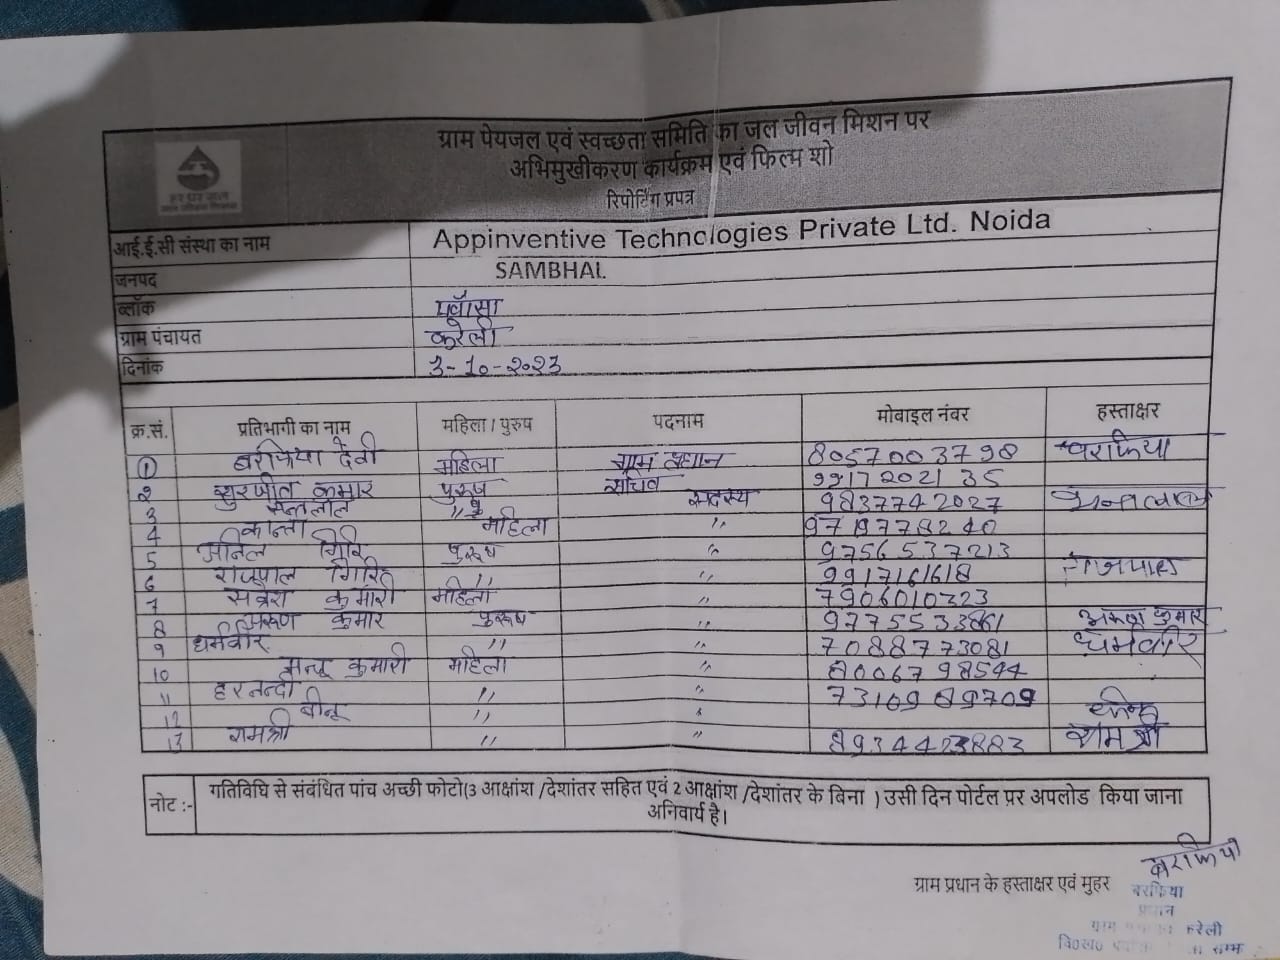 ग्राम पेयजल एवं स्वच्छता समिति का जल जीवन मिशन पर
अभिमुखीकरण कार्यक्रम एवं फिल्म शो
रिपोर्टिंग प्रपत्र
हर घर जल
आई.ई.सी संस्था का नाम Appinventive Technologies Private Ltd. Noida
जनपद SAMBHAL
ब्लॉक पवाँसा
ग्राम पंचायत करेली
दिनांक 3-10-2023
क्र.सं. प्रतिभागी का नाम महिला / पुरुष पदनाम मोबाइल नंबर हस्ताक्षर
1 बरफिया देवी महिला ग्राम प्रधान 8057003798 बरफिया
2 सुरजीत कुमार पुरूष सचिव 9917202135
3 सन्तलाल '' सदस्य 9837742027
4 कान्ता महिला '' 9719778240
5 अनिल गिरि पुरूष '' 9756537213
6 राजपाल गिरि '' '' 9917161618 राजपाल
7 सर्वेश कुमारी महिला '' 7906010323
8 अरूण कुमार पुरूष '' 9775533861 अरूण कुमार
9 धर्मवीर '' '' 7088773081 धर्मवीर
10 मन्जू कुमारी महिला '' 8006798544
11 हरनन्दी '' '' 7310989709
12 वीनू '' ''
13 रामश्री '' '' 8934423883 रामश्री
नोट :- गतिविधि से संबंधित पांच अच्छी फोटो(3 आक्षांश /देशांतर सहित एवं 2 आक्षांश /देशांतर के बिना ) उसी दिन पोर्टल पर अपलोड किया जाना
अनिवार्य है।
बरफिया
ग्राम प्रधान के हस्ताक्षर एवं मुहर
बरफिया
प्रधान
ग्राम करेली
वि०ख०